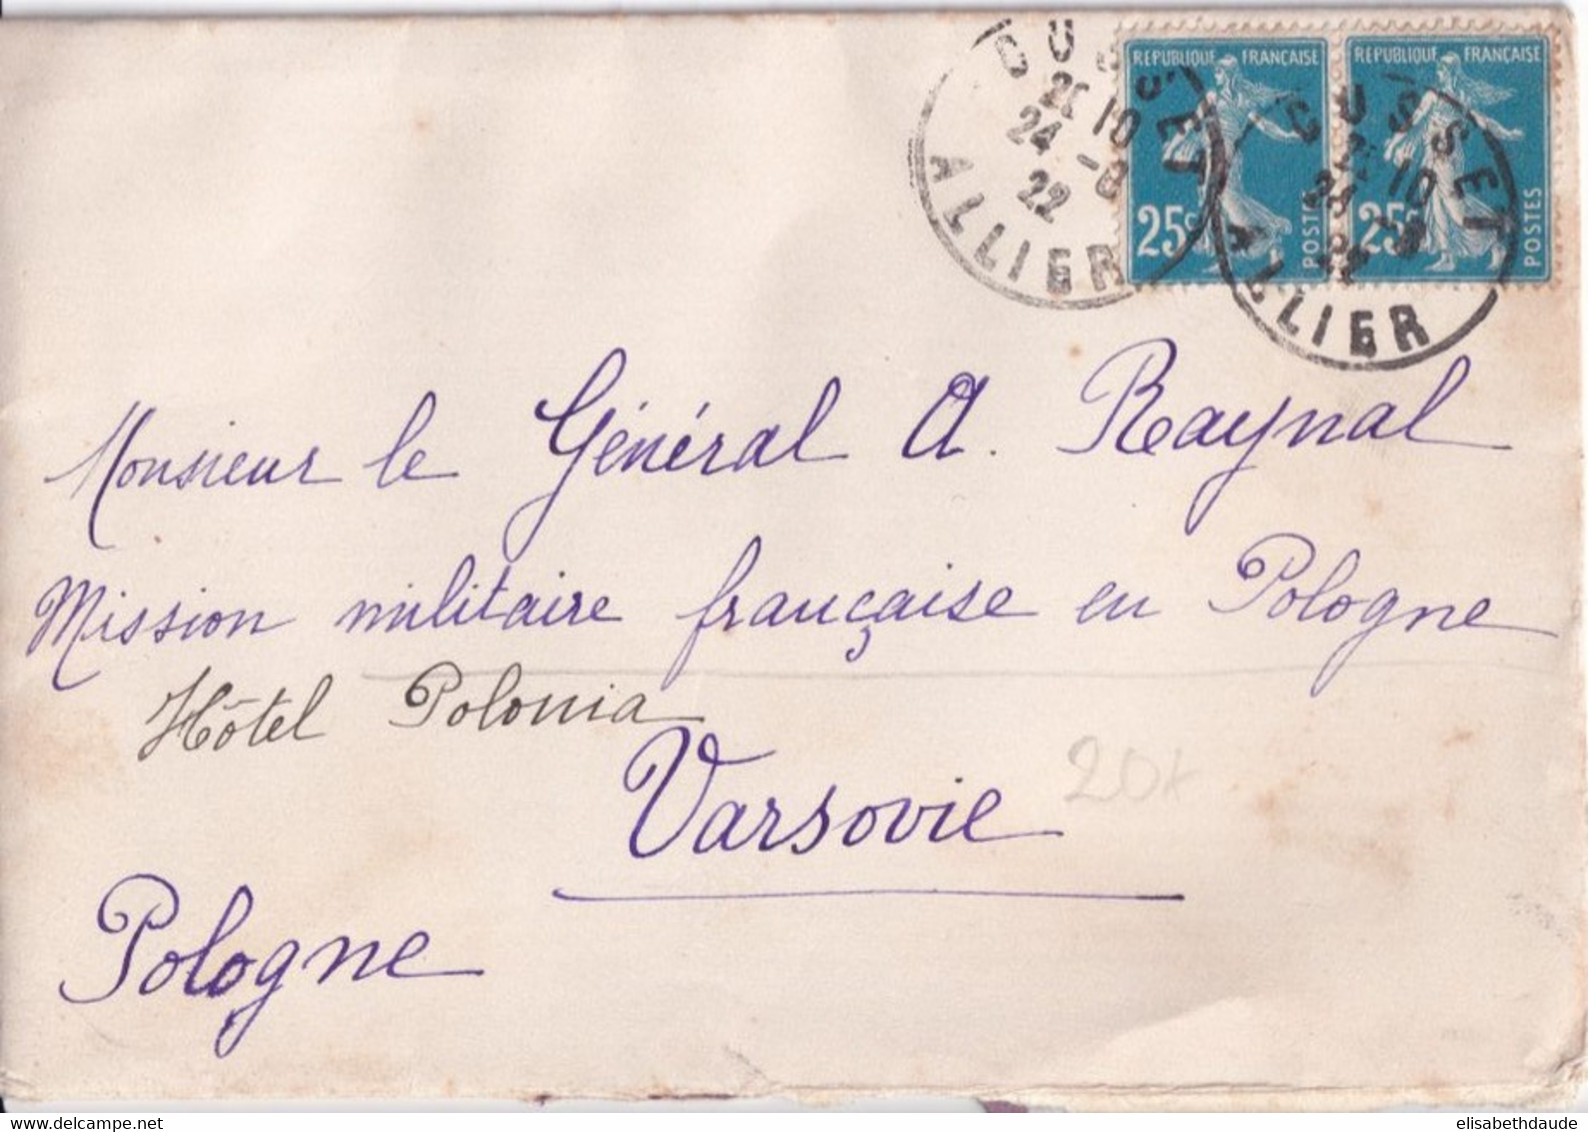 CUSSET
10
24 -8
22
ALLIER
REPUBLIQUE FRANÇAISE
25c
POSTES
REPUBLIQUE FRANÇAISE
25c
POSTES
CUSSET
10
ALLIER
Monsieur le Général A. Raynal
Mission militaire française en Pologne
Hôtel Polonia
Varsovie
Pologne
elisabethdaude